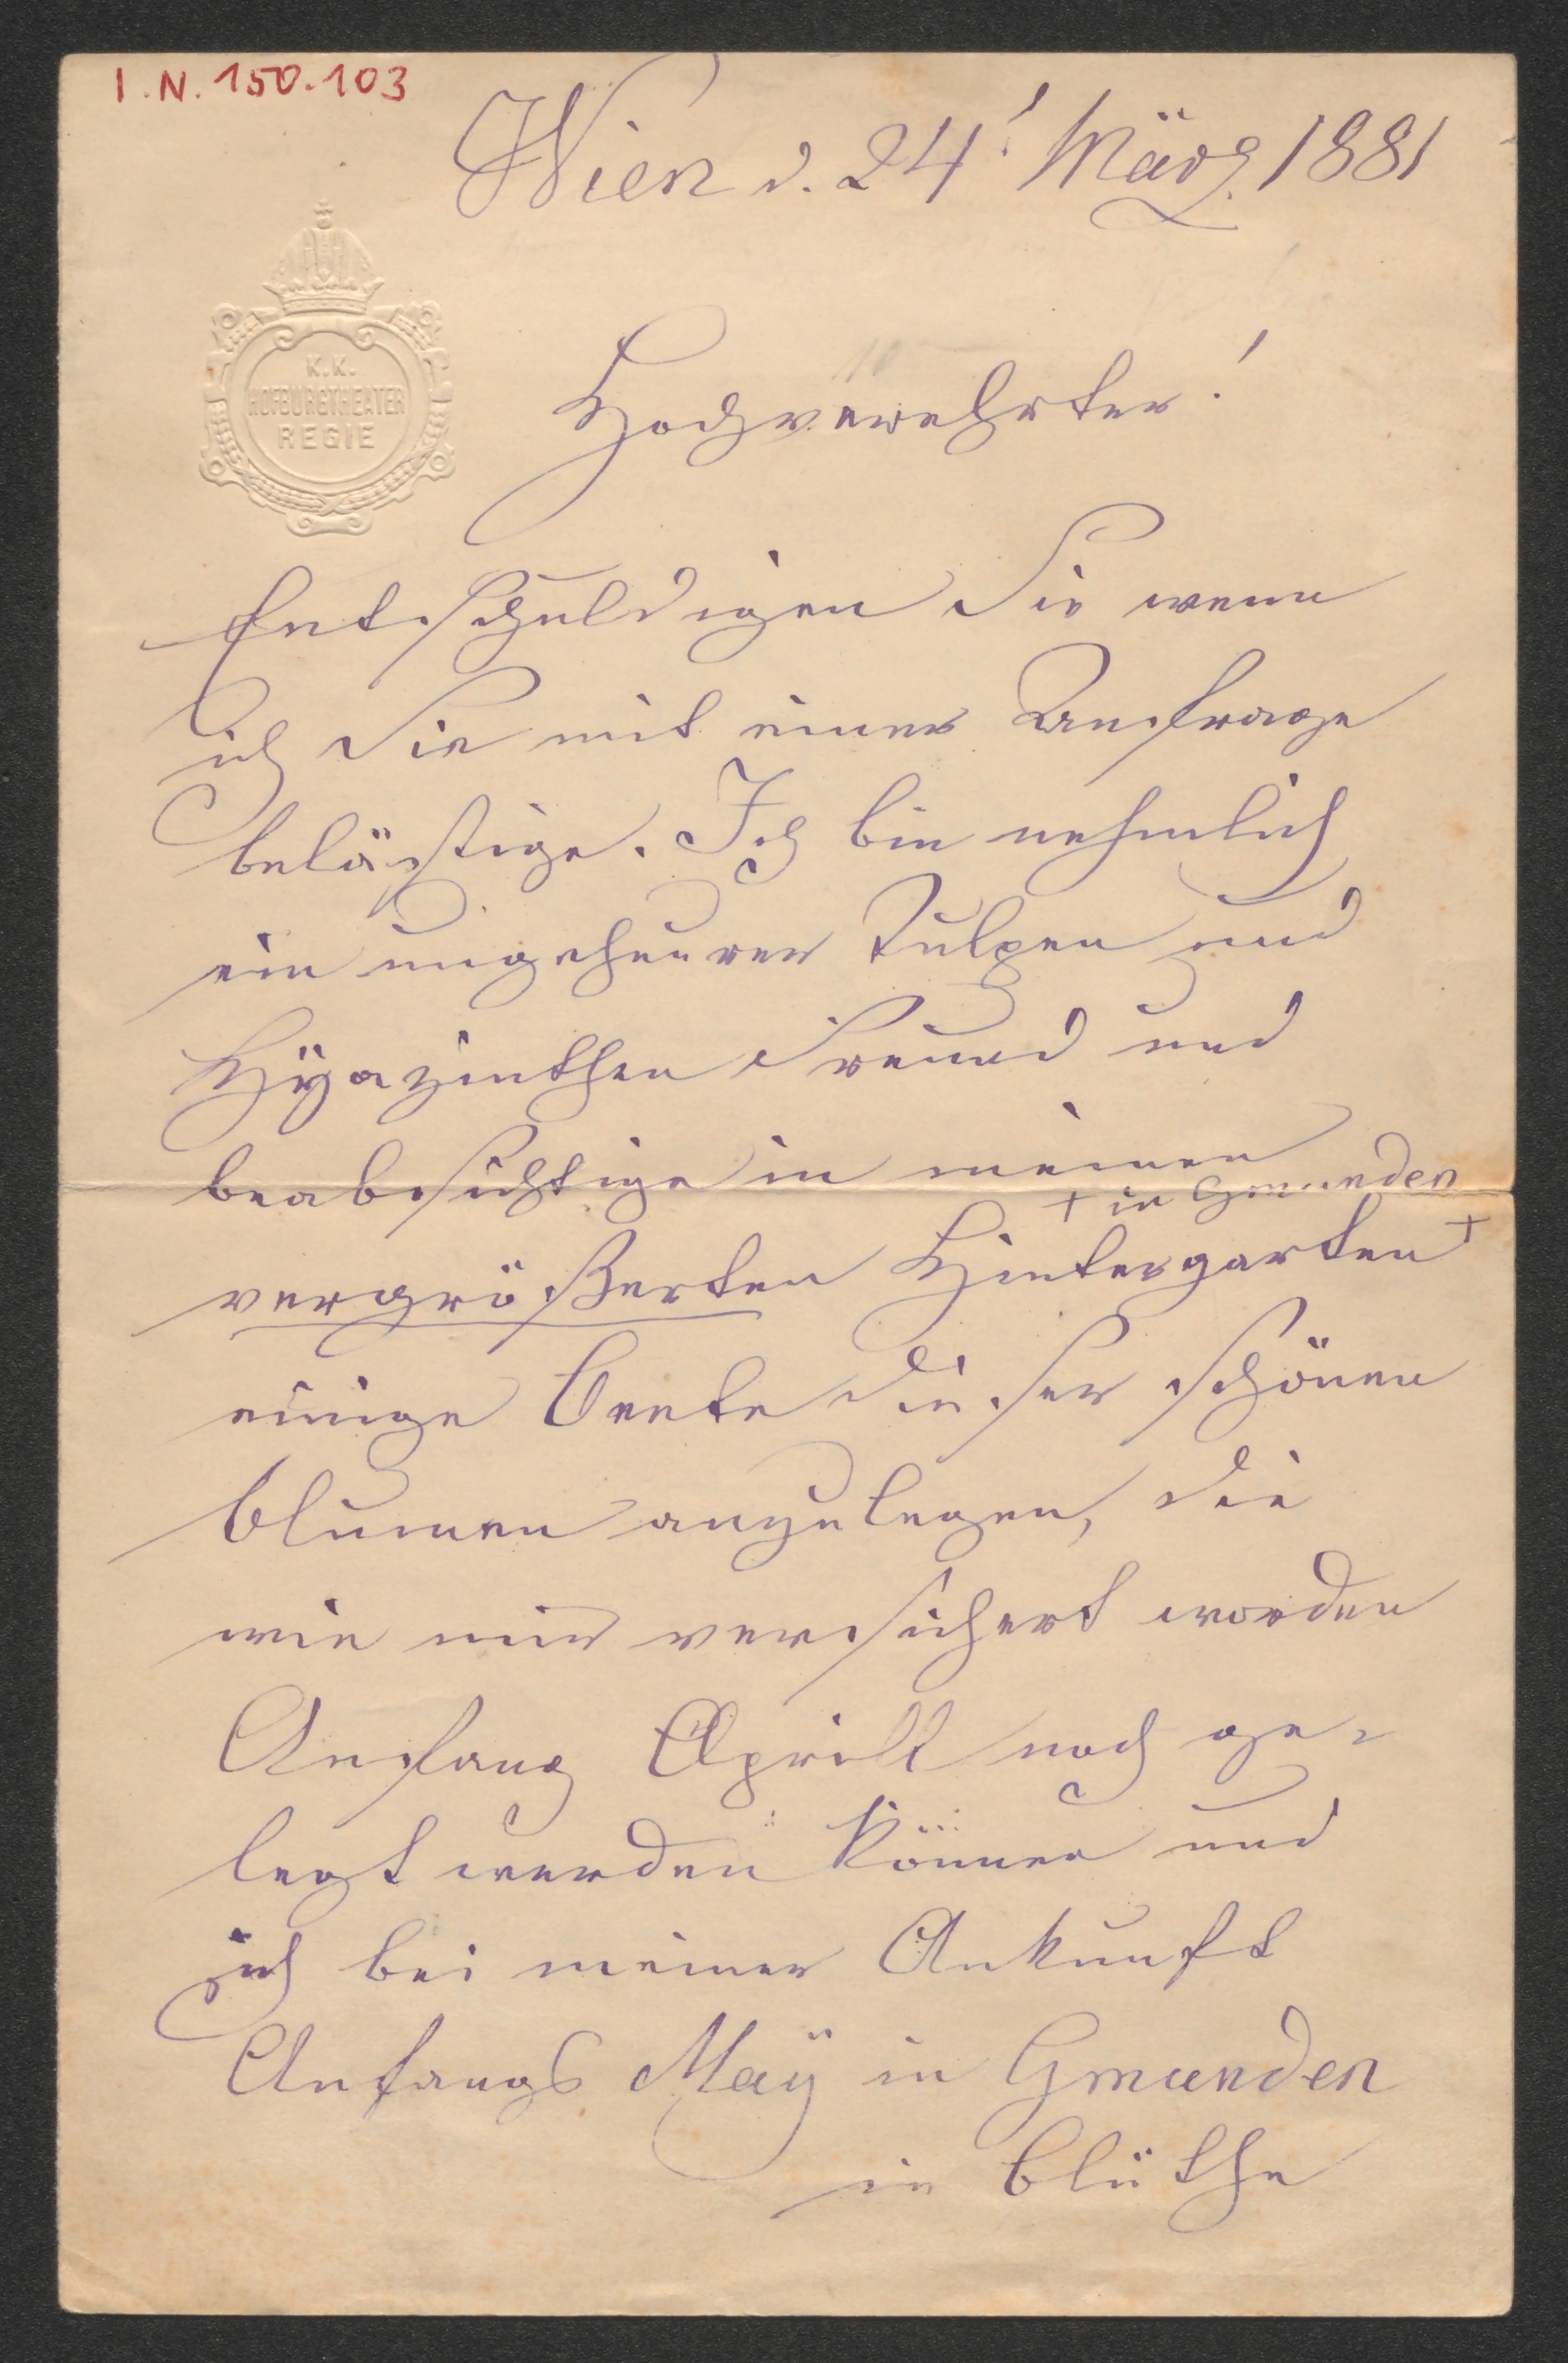 I.N. 150.103
Wien d. 24' März 1881
K.K.
HOFBURGTHEATER
REGIE
Hochverehrter!
Entschuldigen Sie wenn
ich Sie mit einer Anfrage
belästige. Ich bin nehmlich
ein ungeheurer Tulpen und
Hÿazinthen Freund und
beabsichtige in meinen
+ in Gmunden
vergrößerten Hintergarten +
einige Beete dieser schönen
Blumen anzulegen, die
wie mir versichert worden
Anfang Aprill noch ge-
legt werden können und
ich bei meiner Ankunft
Anfangs Maÿ in Gmunden
in Blüthe